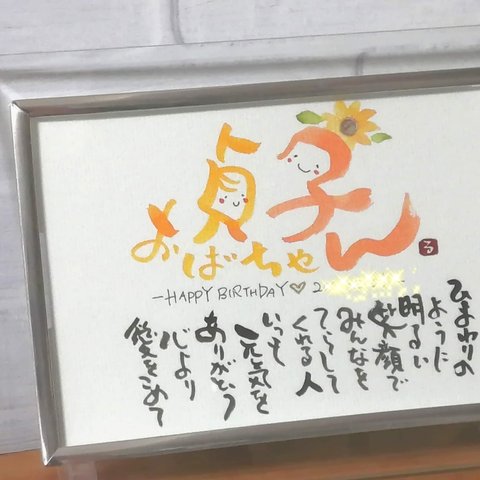 貞子
おばちゃん
る
-HAPPY BIRTHDAY♡2
ひまわりの
ように
明るい
笑顔で
みんなを
てらして
くれる人
いつも
元気を
ありがとう
心より
愛をこめて